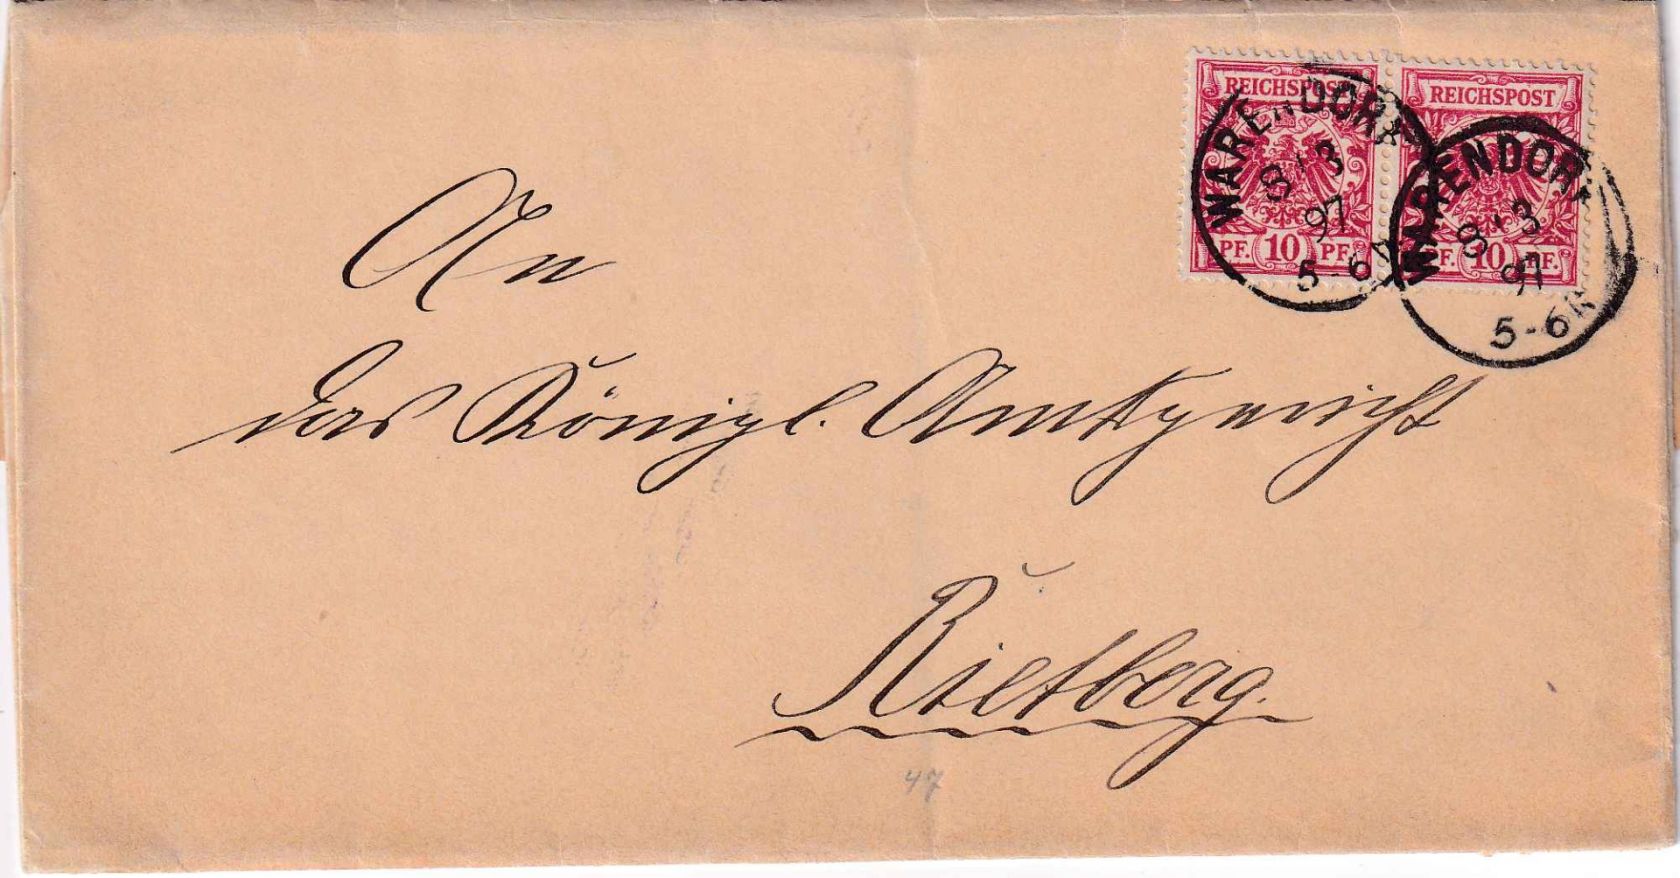 REICHSPOST REICHSPOST
WARENDORF WARENDORF
8/3 8/3
97 97
5-6N 5-6N
PF. 10 PF. PF. 10 PF.
An
das Königl. Amtsgericht
Rietberg.
47